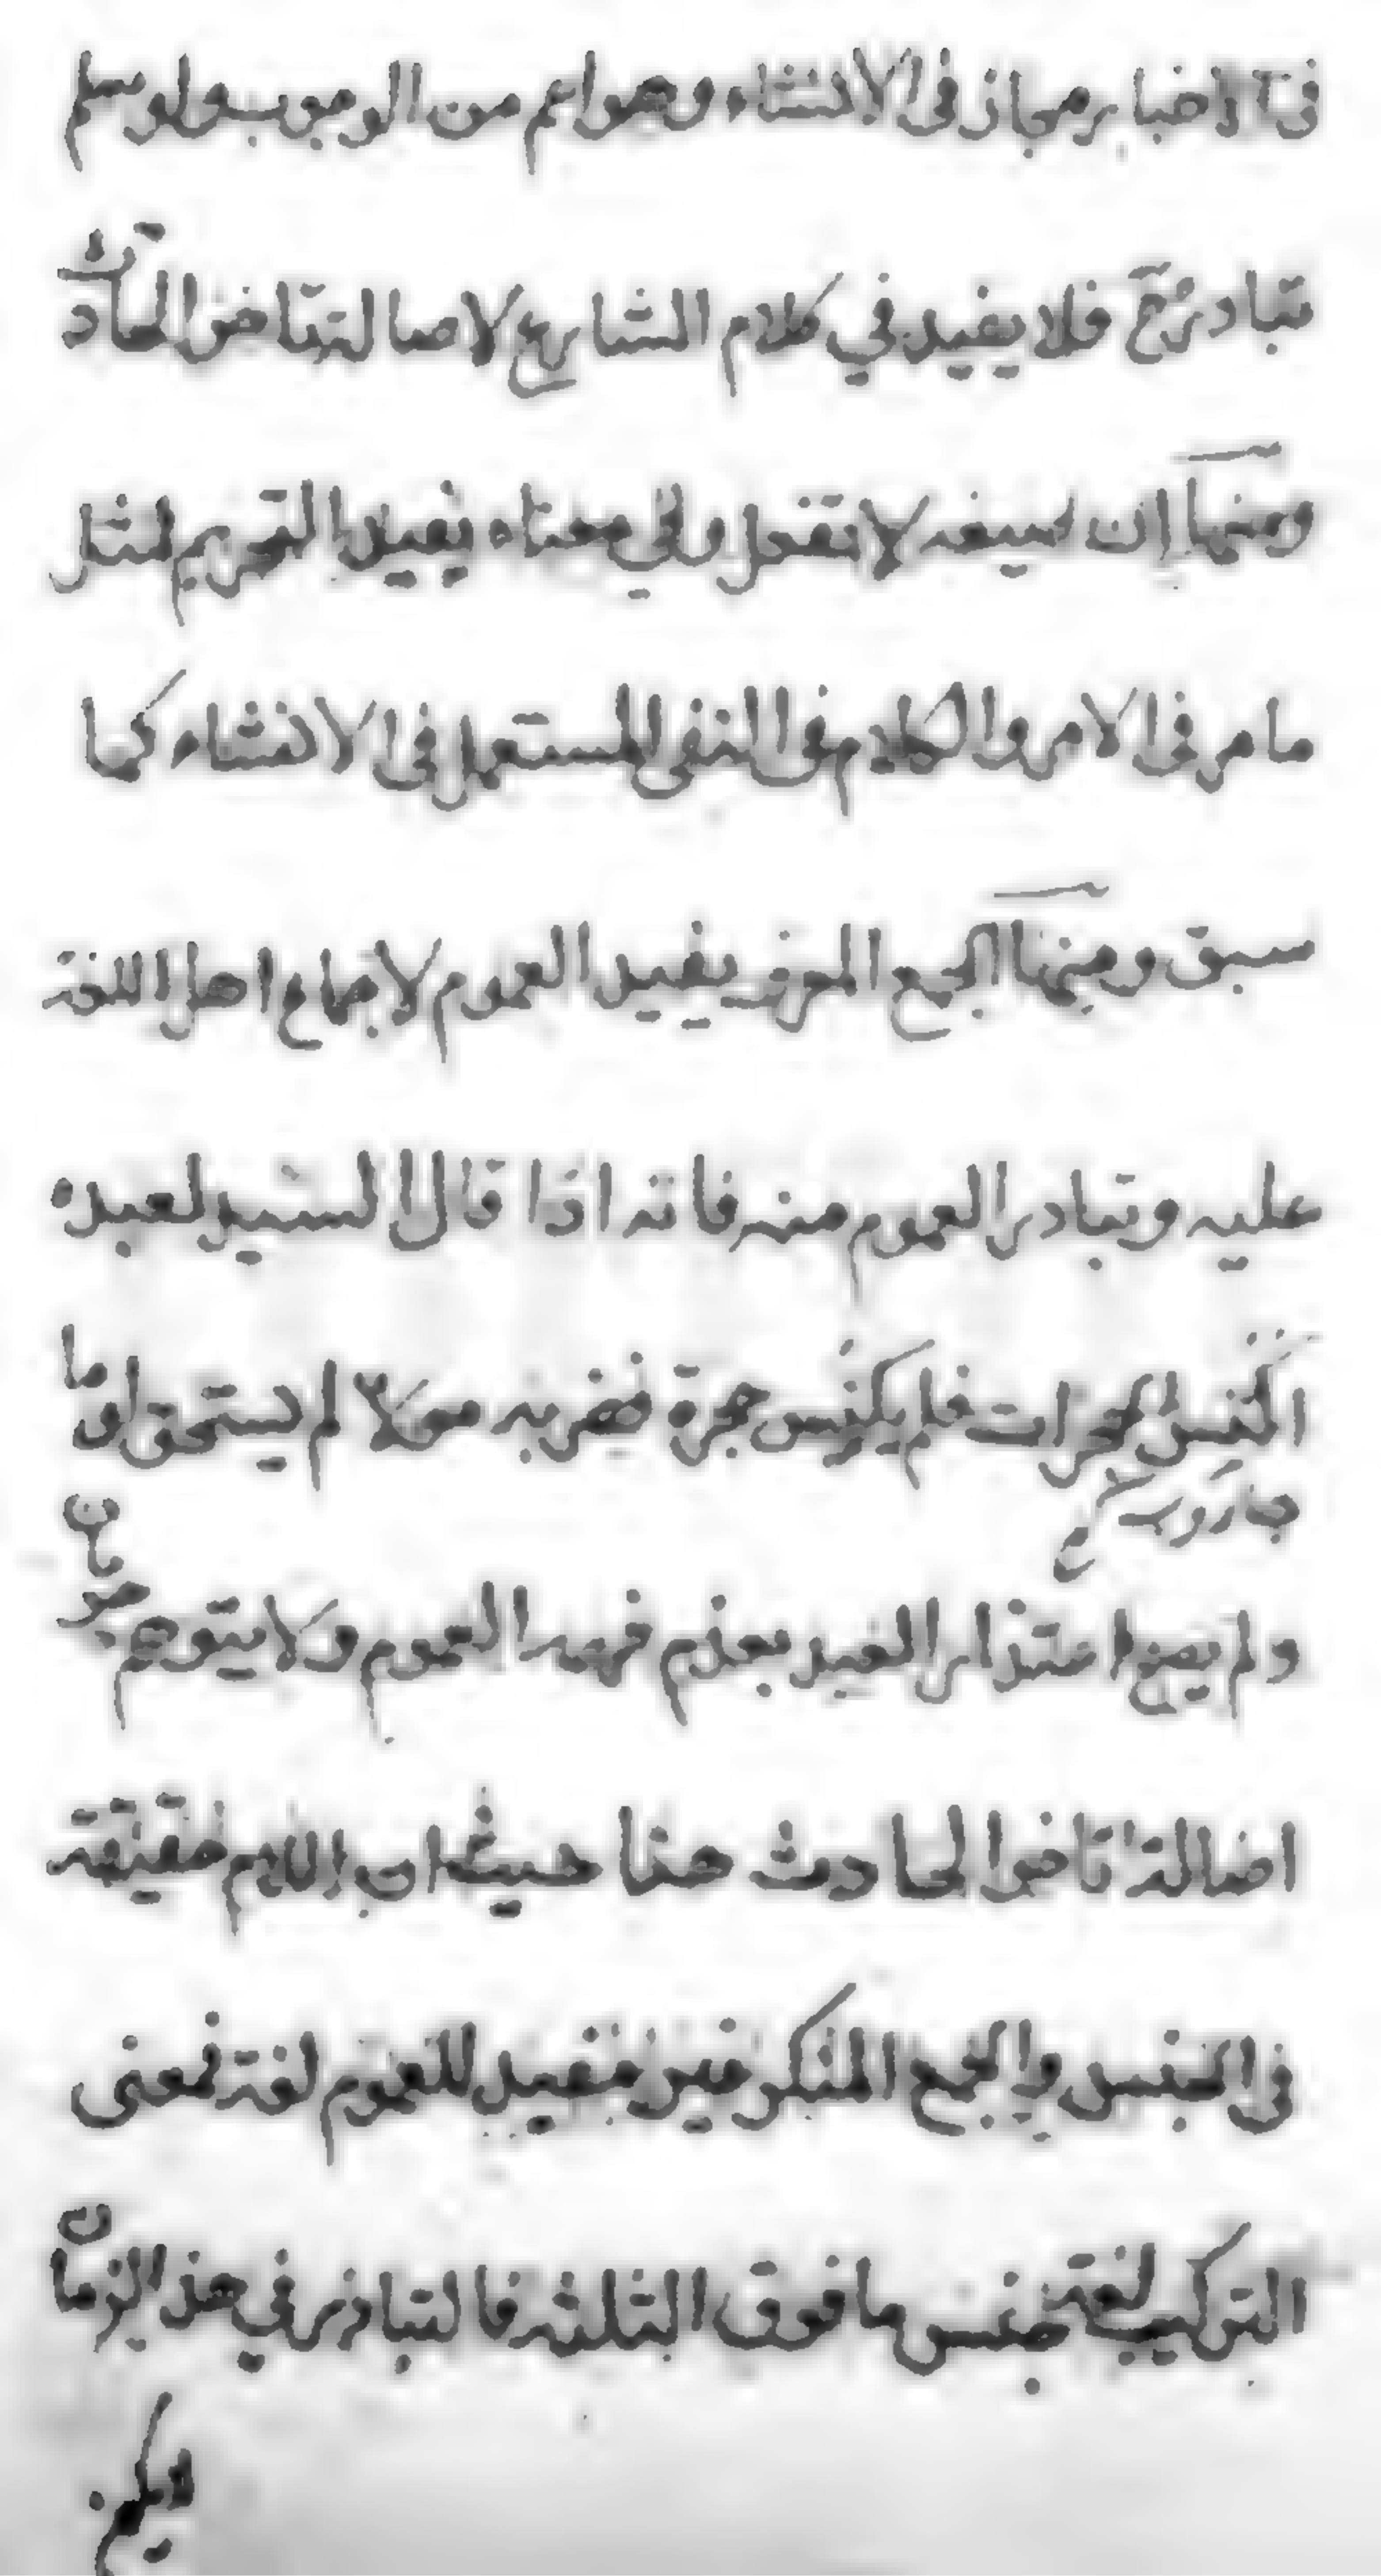 في الاخبار مجاز في الانشاء وهو اعم من الوجوب ولو سلم
تبادر رجح فلا يفيد في كلام الشارع لاصالة تاخر الحادث
ومنها ان صيغه لا تفعل وفي معناه يفيد التحريم لمثل
ما مر في الامر والكلام في النفي المستعمل في الانشاء كما
سبق ومنها الجمع المعرف يفيد العموم لاجماع اهل اللغة
عليه وتبادر العموم منه فانه اذا قال السيد لعبده
اكنس الحجرات فلم يكنس حجرة فضربه مولاه لم يستحق لوما
جاروب
ولم يصح اعتذار العبد بعدم فهمه العموم ولا يتوهم
اصالة تاخر الحادث هنا حيث ان اللام حقيقة
في الجنس والجمع المنكر غير مفيد للعموم لغة فمعنى
التركيب لغة جنس ما فوق الثلثه فالتبادر في هذا الزمان